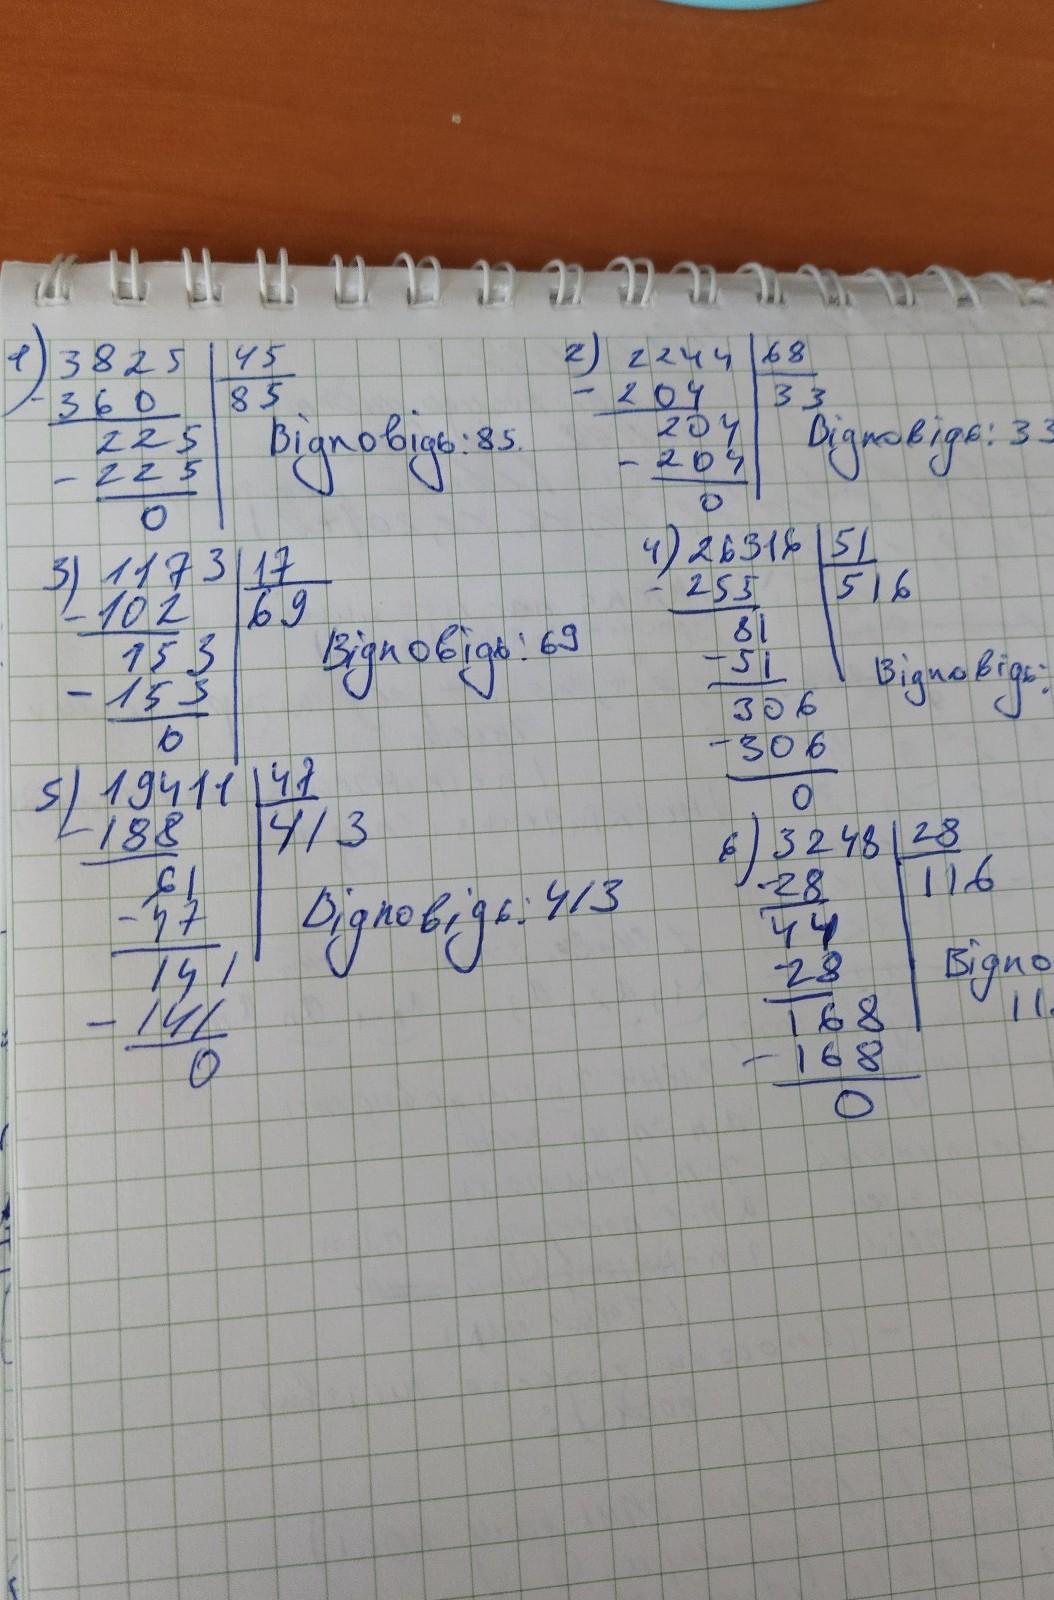 1) 3825 | 45
- 360 | 85
225 Відповідь: 85.
- 225
0
2) 2244 | 68
- 204 | 33
204 Відповідь: 33
- 204
0
3) 1173 | 17
- 102 | 69
153 Відповідь: 69
- 153
0
4) 26316 | 51
- 255 | 516
81
- 51 Відповідь:
306
- 306
0
5) 19411 | 47
- 188 | 413
61
- 47 Відповідь: 413
141
- 141
0
6) 3248 | 28
- 28 | 116
44
- 28 Відпо
168 11
- 168
0